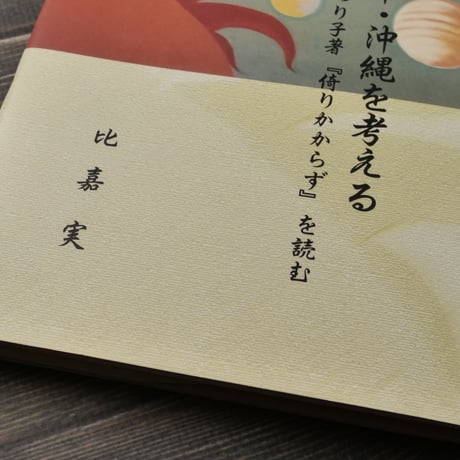 ・沖縄を考える
り子著『倚りかからず』を読む
比嘉実